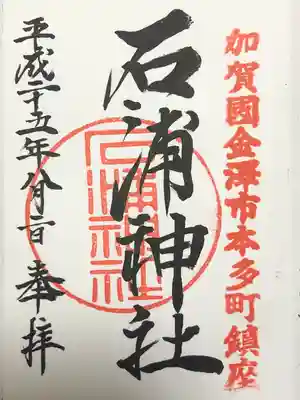 加賀國金澤市本多町鎮座
石浦神社
石浦神社
平成二十五年
奉拝